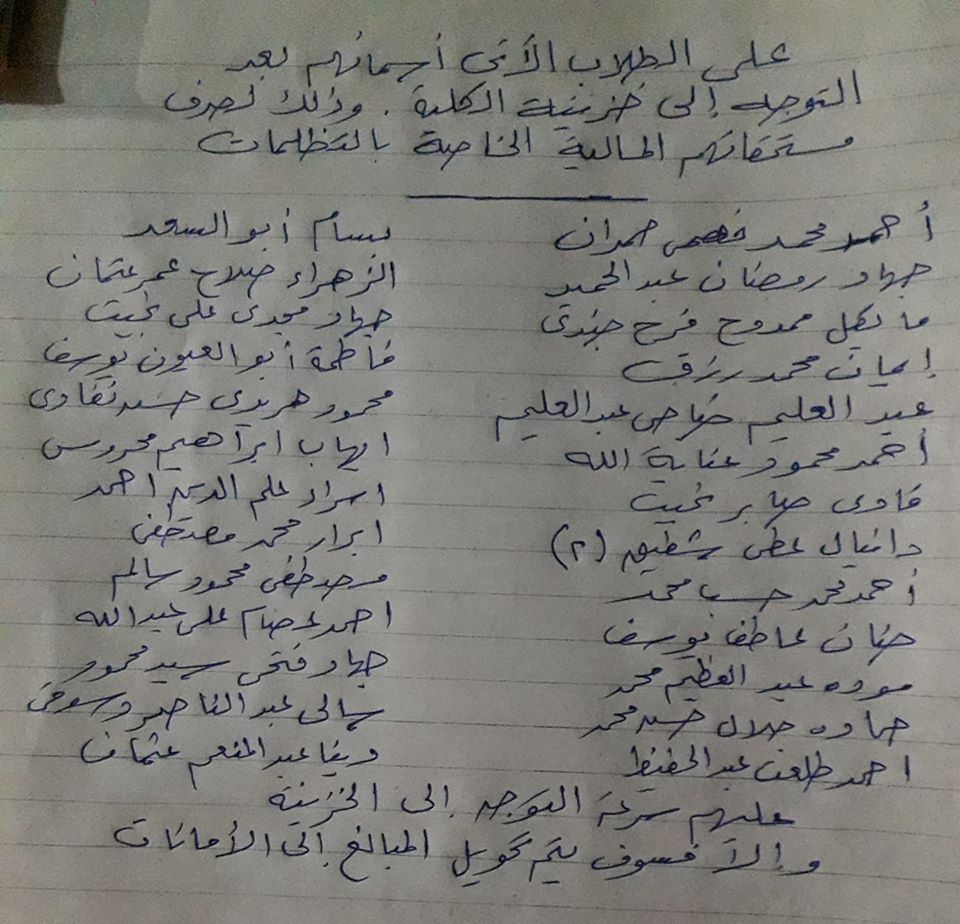 على الطلاب الآتى أسمائهم بعد
التوجه إلى خزينة الكلية . وذلك لصرف
مستحقاتهم المالية الخاصة بالتظلمات
أحمد محمد فهمى حمدان
جهاد رمضان عبد الحميد
مايكل ممدوح فرح جندى
إيمان محمد رزق
عبد العليم ضاحى عبد العليم
أحمد محمود عناية الله
فادى صابر بخيت
دانيال عطى شفيق (٢)
أحمد محمد حسب محمد
حنان عاطف يوسف
موده عبد العظيم محمد
حماده جلال حسن محمد
احمد طلعت عبد الحفيظ
بسام أبو السعد
الزهراء صلاح عمر عثمان
جهاد مجدى على بخيت
فاطمة أبو العيون يوسف
محمود هريدى حسن نقادى
ايهاب ابراهيم محروس
اسراء علم الدين احمد
ابرار محمد مصطفى
مصطفى محمود سالم
احمد عصام على عبد الله
جهاد فتحى سيد محمود
سالى عبد الناصر
دينا عبد المنعم عثمان
عليهم سرعة التوجه إلى الخزينة
وإلا فسوف يتم تحويل المبالغ إلى الأمانات